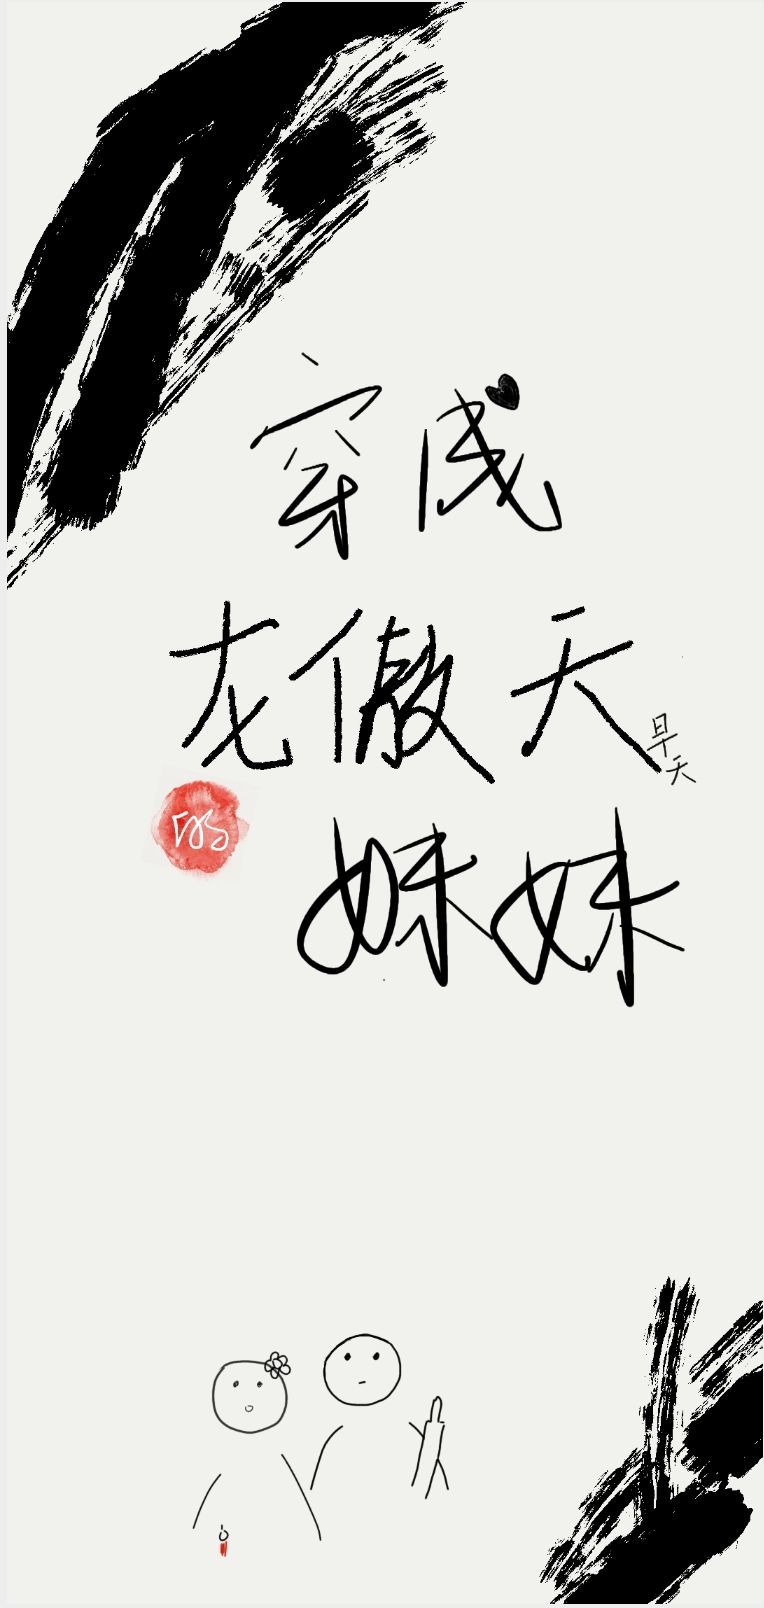 穿成
龙傲天
妹妹
早天